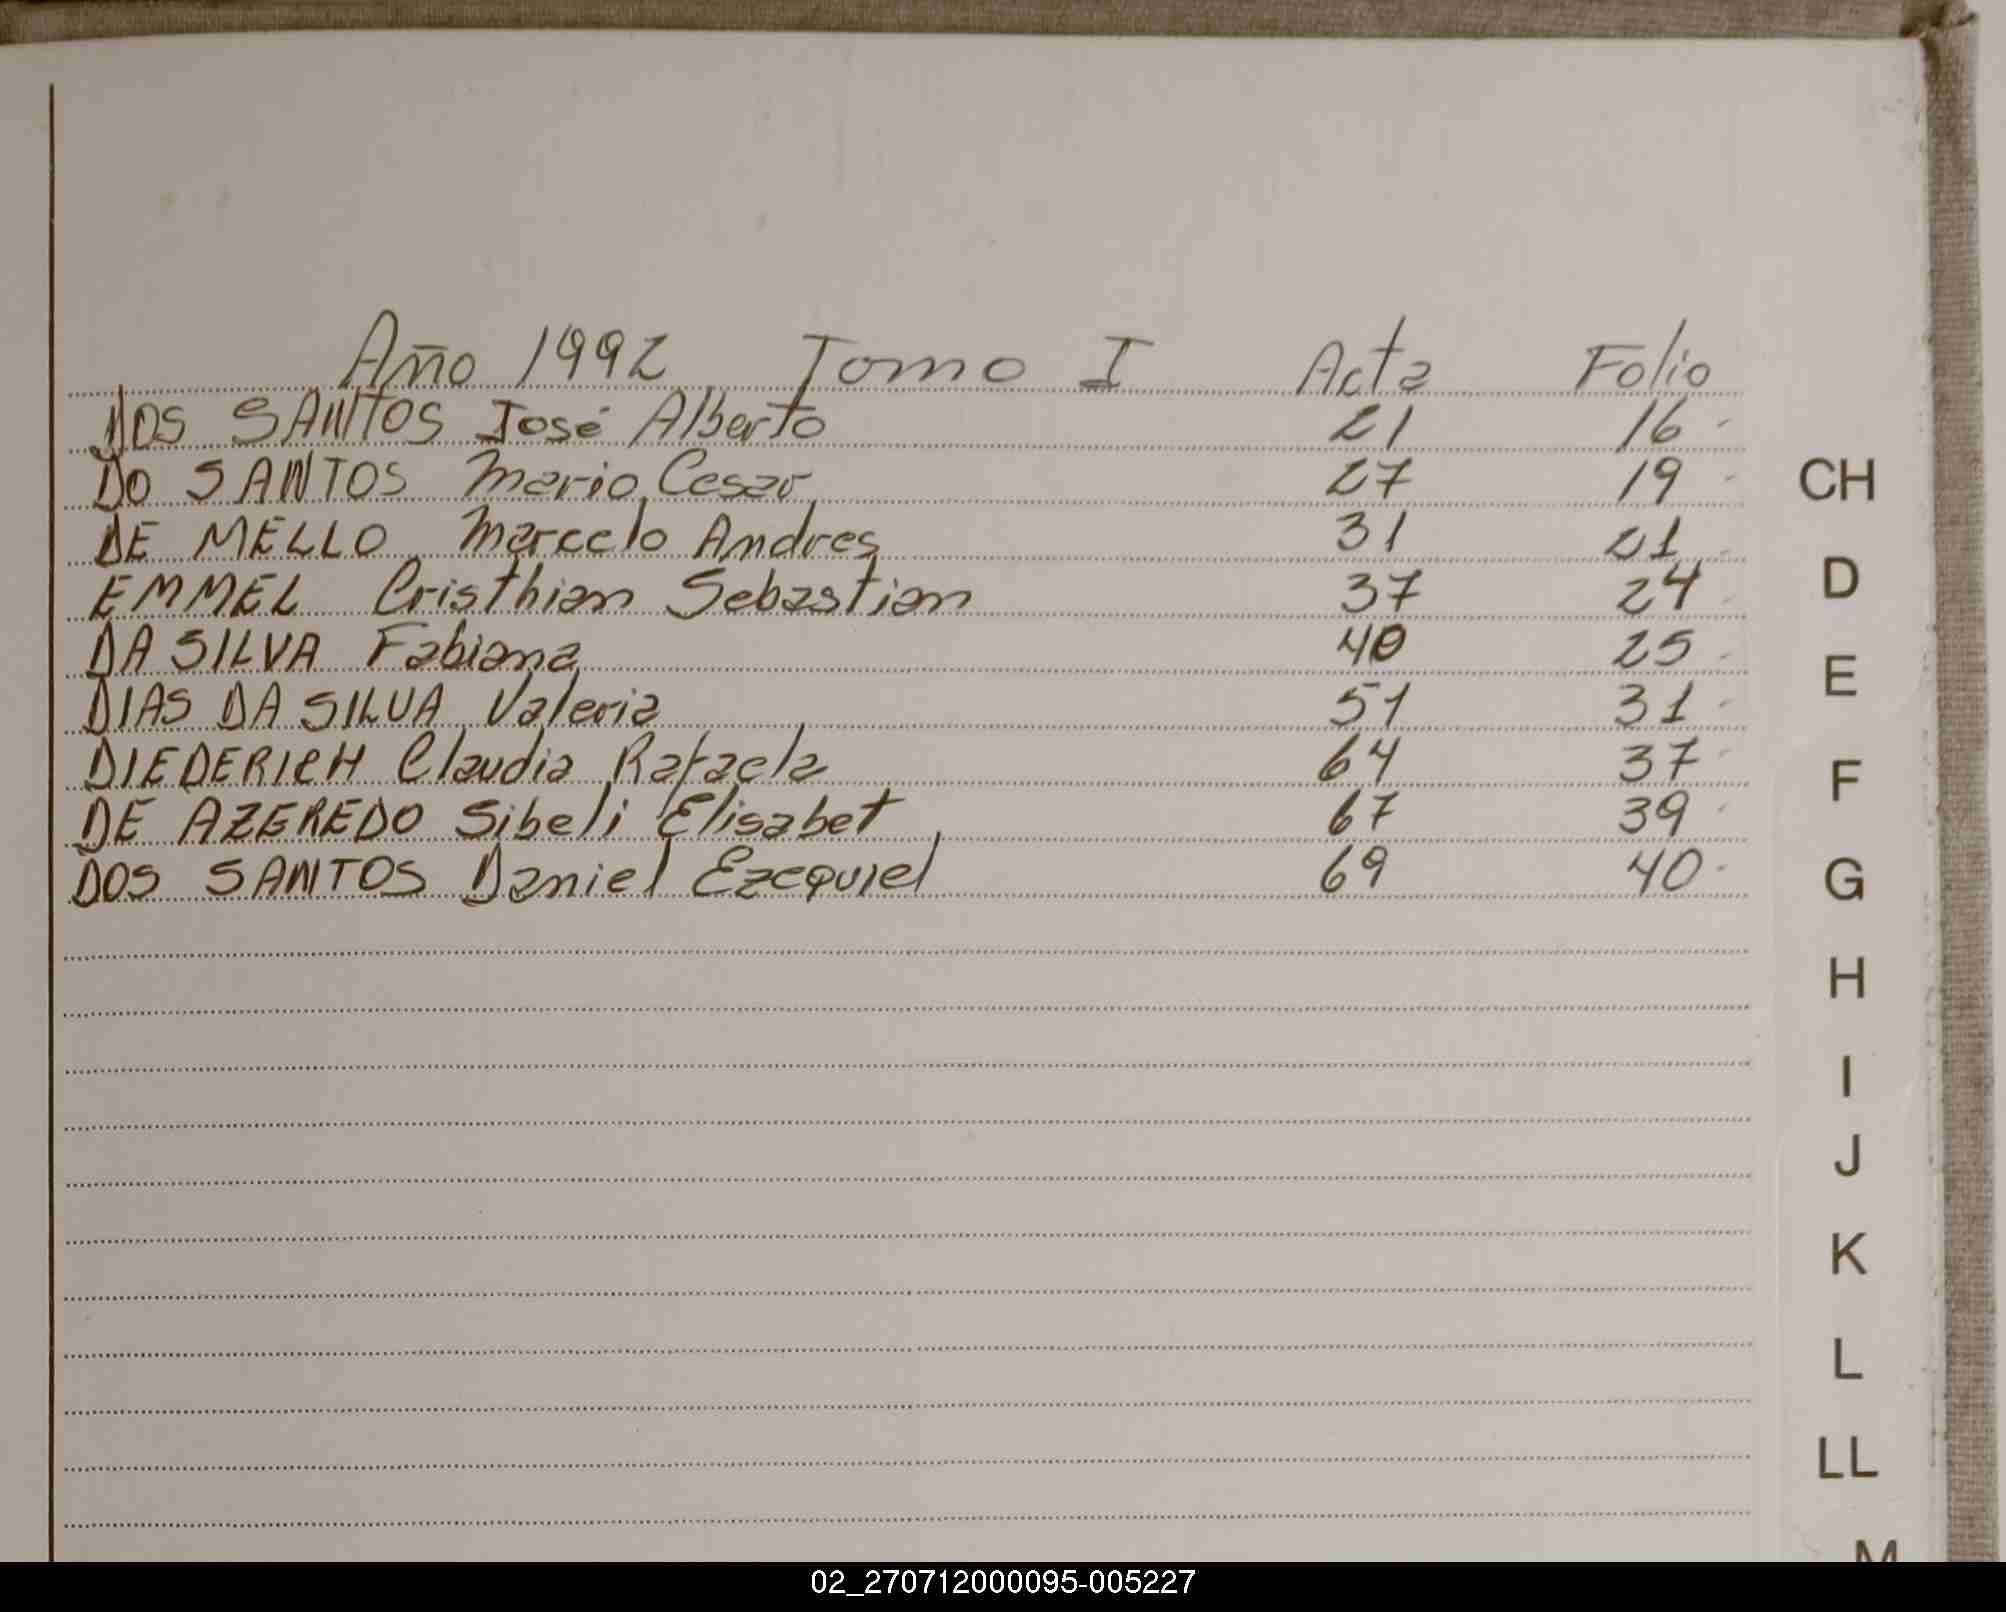 Año 1992 Tomo I Acta Folio
DOS SANTOS José Alberto 21 16
DO SANTOS Mario Cesar 27 19
DE MELLO Marcelo Andres 31 21
EMMEL Cristhian Sebastian 37 24
DA SILVA Fabiana 40 25
DIAS DA SILVA Valeria 51 31
DIEDERICH Claudia Rafaela 64 37
DE AZEREDO Sibeli Elisabet 67 39
DOS SANTOS Daniel Ezequiel 69 40
CH
D
E
F
G
H
I
J
K
L
LL
M
02_270712000095-005227